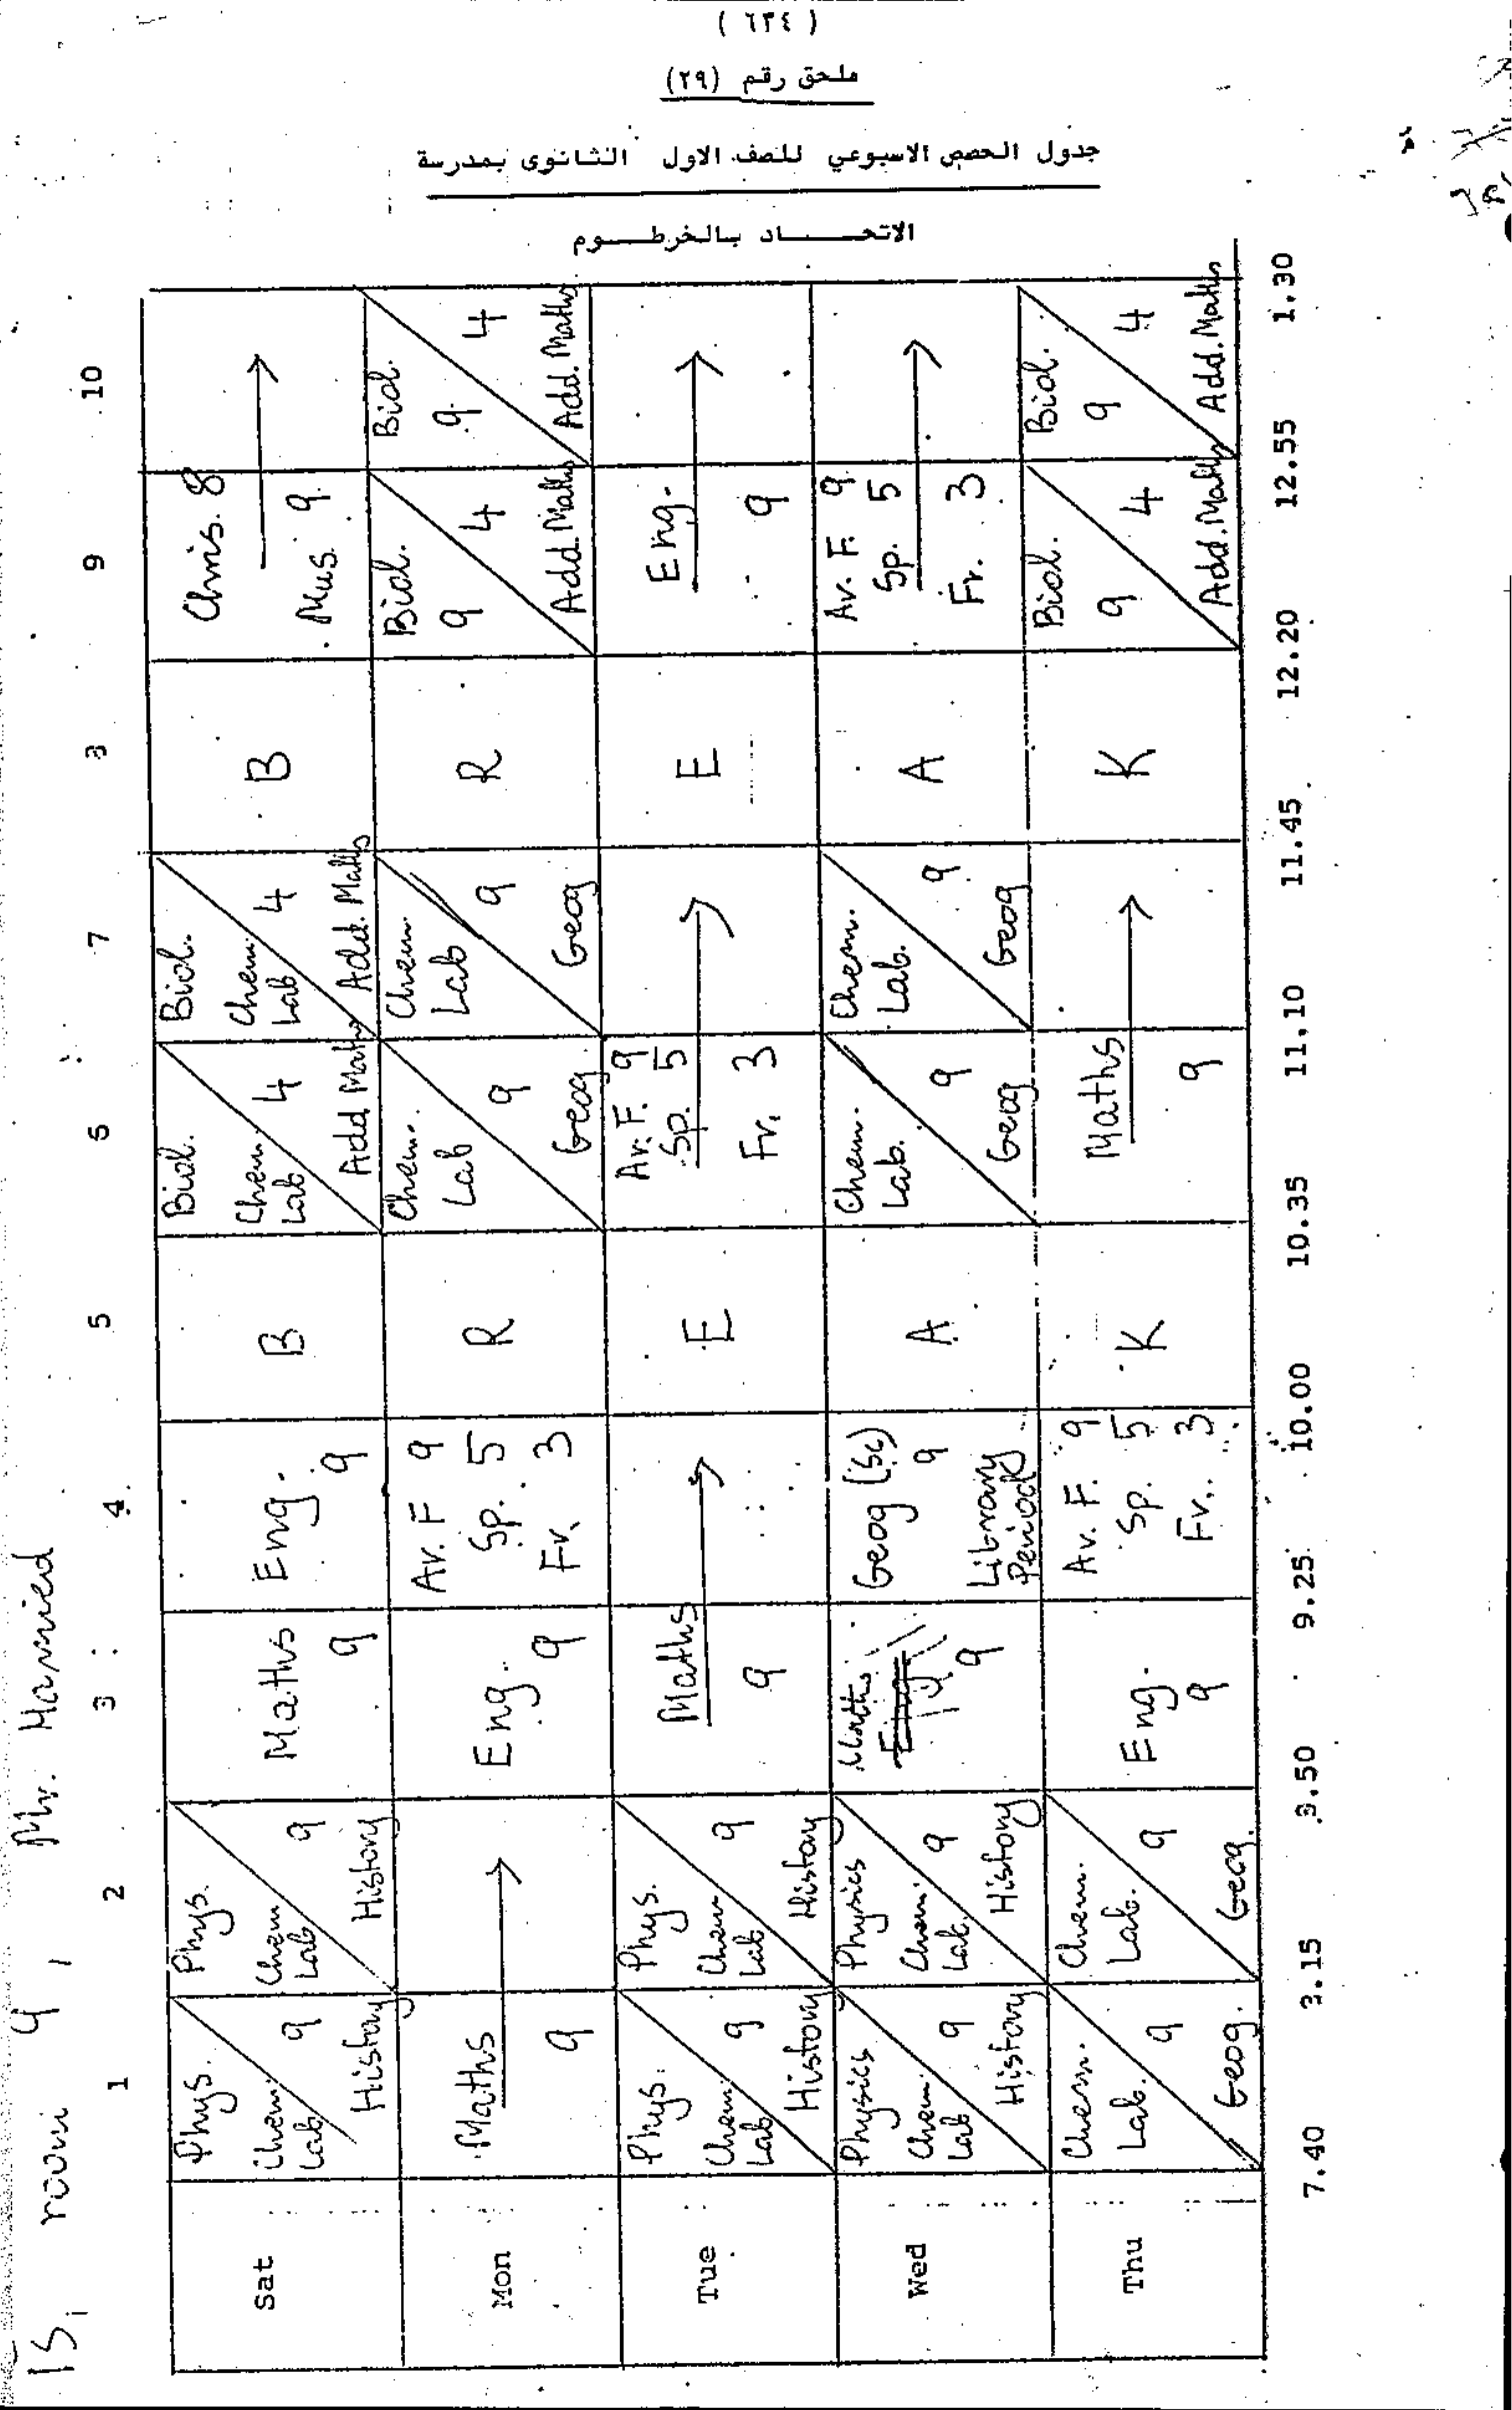 ( ٦٣٤ )
ملحق رقم (٢٩)
جدول الحصص الاسبوعي للصف الاول الثانوى بمدرسة
الاتحــــاد بالخرطــوم
room 9, Mr.
1 2 3 4 5 6 7 8 9 10
Sat
Phys. Chem. Lab 9 History
Phys. Chem Lab 9 History
Maths 9
Eng. 9
B
Biol. Chem. Lab 4 Add Maths
Biol. Chem. Lab 4 Add. Maths
B
Chris. 8 Mus. 9 →
Mon
Maths 9 →
Eng. 9
Av. F 9 Sp. 5 Fr. 3
R
Chem. Lab 9 Geog
Chem Lab 9 Geog
R
Biol. 9 4 Add. Maths
Biol. 9 4 Add. Maths
Tue
Phys. Chem. Lab 9 History
Phys. Chem Lab 9 History
Maths 9 →
E
Av. F. 9 Sp. 5 Fr. 3 →
E
Eng. 9 →
Wed
Physics Chem. Lab 9 History
Physics Chem. Lab. 9 History
Maths 9
Geog (Sc) 9 Library Period
A
Chem. Lab. 9 Geog
Chem. Lab. 9 Geog
A
Av. F. 9 Sp. 5 Fr. 3 →
Thu
Chem. Lab. 9 Geog.
Chem. Lab. 9 Geog.
Eng. 9
Av. F. 9 Sp. 5 Fr. 3
K
Maths 9 →
K
Biol. 9 4 Add. Maths
Biol. 9 4 Add. Maths
7.40 3.15 3.50 9.25 10.00 10.35 11.10 11.45 12.20 12.55 1.30